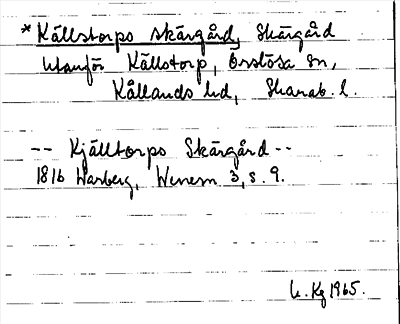 * Källstorps skärgård, Skärgård
utanför Källstorp, Örslösa sn,
Kållands hd, Skarab. l.
-- Kjälltorps Skärgård --
1816 Warberg, Wenern 3, s. 9.
U. Kg 1965.